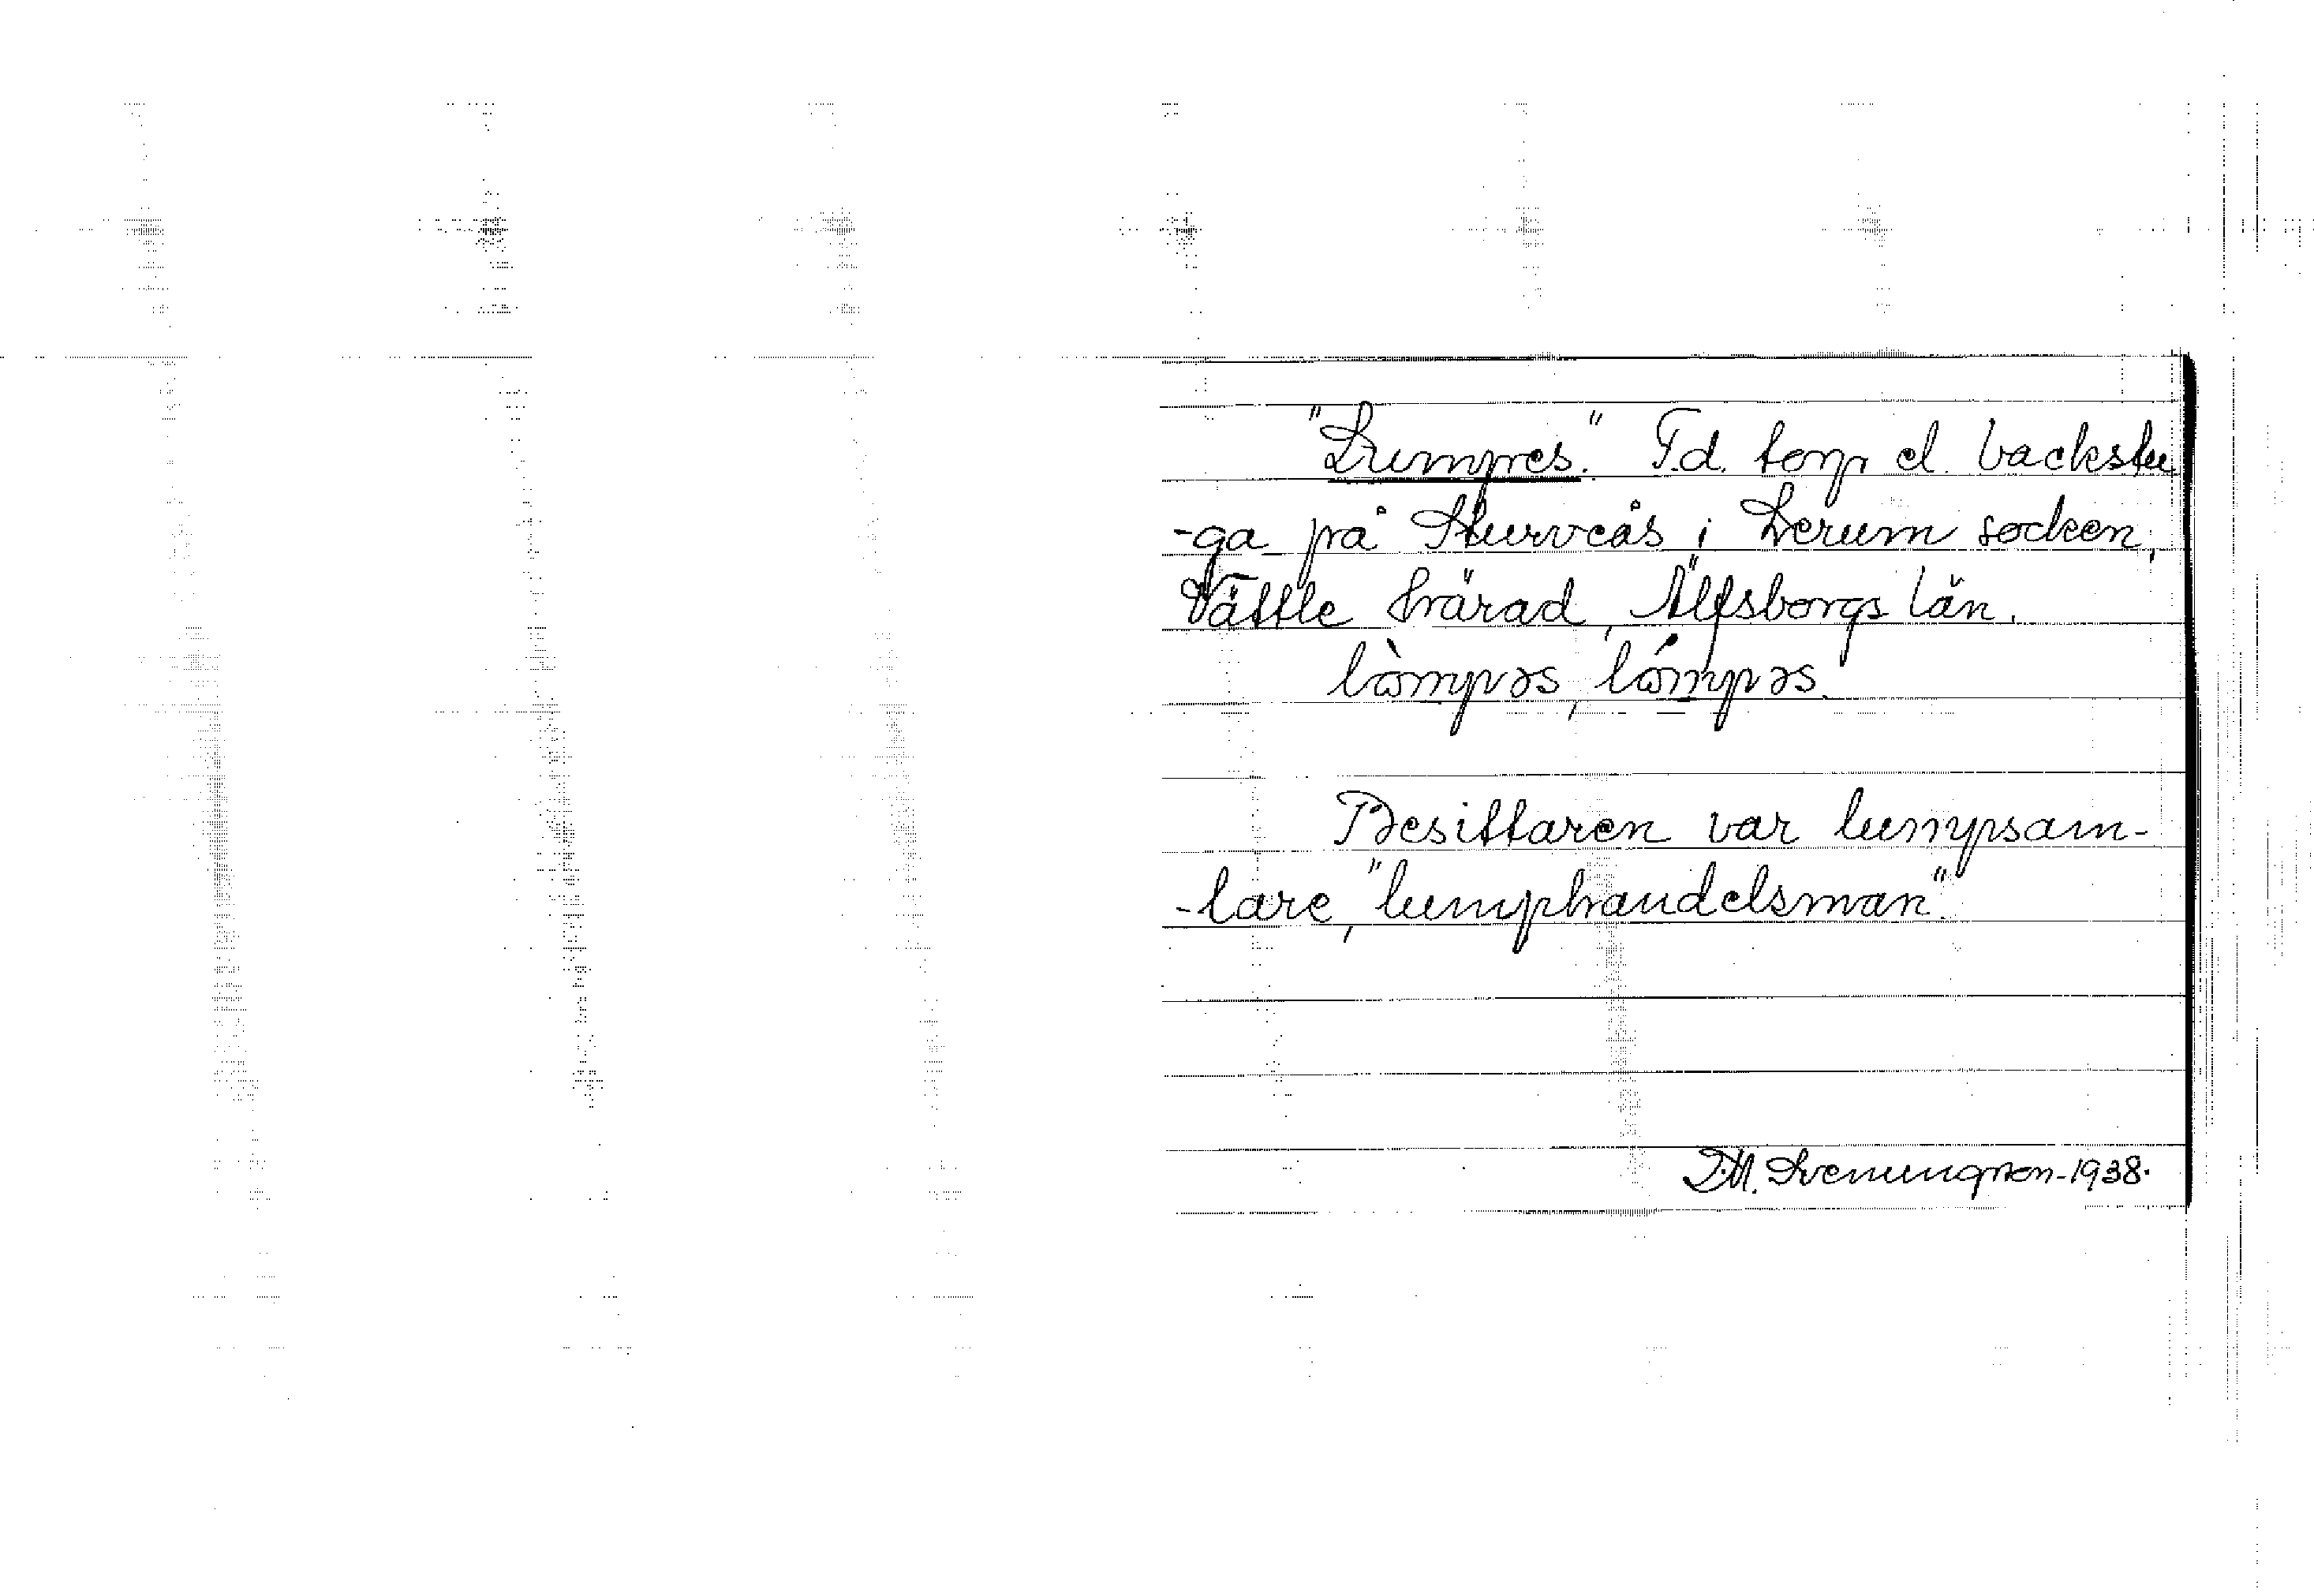 "Lumpes." F.d. torp el. backstu
-ga på Sturveås i Lerum socken,
Vättle härad, Älfsborgs län.
lòmpəs, lómpəs.
Besittaren var lumpsam-
-lare, "lumphandelsman".
D.M. Svenungson-1938.